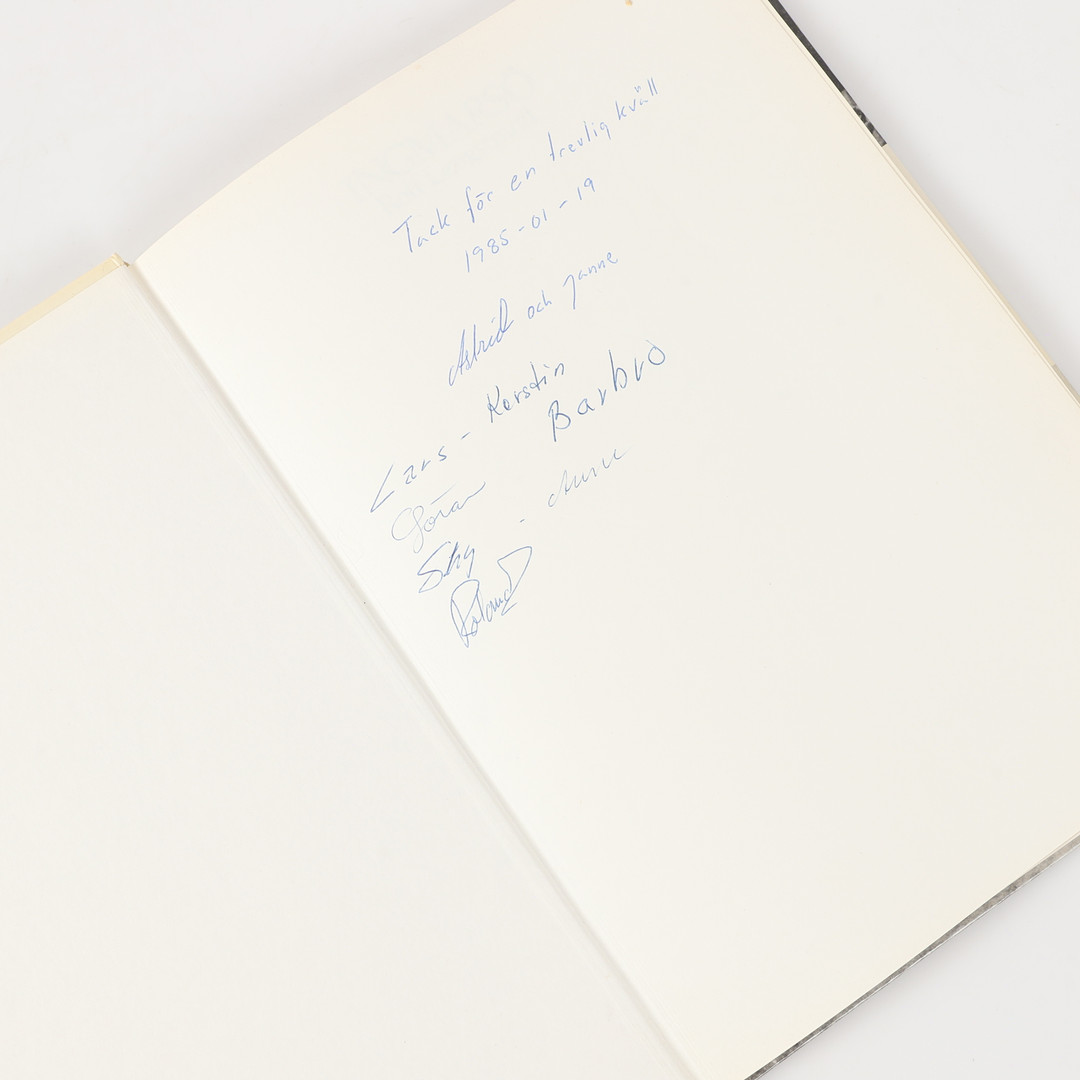 Tack för en trevlig kväll
1985-01-19
Astrid och Janne
Lars - Kerstin
Göran Barbro
Stig - Anne
Roland